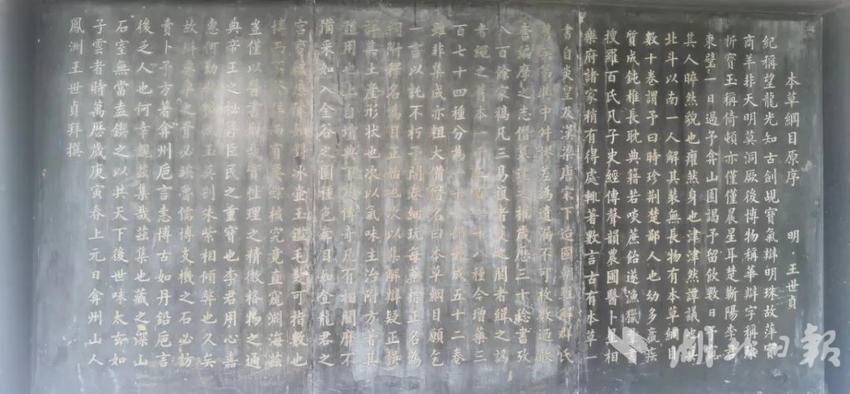 本草綱目原序 明·王世貞
紀稱望龍光知古劍覘寶氣辯明珠故萍實
商羊非天明莫洞厥後博物稱華辯字稱康
析寶玉稱倚頓亦僅僅晨星耳楚蘄陽李君
東璧一日過予弇山園謁予留飲數日予
其人睟然貌也癯然身也津津然譚議也真
北斗以南一人解其裝無長物有本草綱目
數十卷謂予曰時珍荊楚鄙人也幼多羸疾
質成鈍椎長耽典籍若啖蔗飴遂漁獵
搜羅百氏凡子史經傳聲韻農圃醫卜星相
樂府諸家稍有得處輒著數言古有本草一
書自炎皇及漢梁唐宋下迨國朝註解群氏
其中舛謬差訛遺漏不可枚數迺敢
奮編摩之志僭纂述之權歲歷三十稔書攷
八百餘家稿凡三易復者芟之闕者緝之訛
者繩之舊本一千五百一十八種今增藥三
百七十四種分為一十六部著成五十二卷
雖非集成亦粗大備僭名曰本草綱目願乞
一言以託不朽予開卷細玩每藥標正名為
綱附釋名為目正始也次以集解辯疑正誤
詳其土產形狀也次以氣味主治附方著其
體用也上自墳典下及傳奇凡有相關靡不
備采如入金谷之園種色奪目如登龍君之
宮寶藏悉陳如對冰壺玉鑑毛髮可指數也
博而不繁詳而有要綜核究竟直窺淵海茲
豈僅以醫書覯哉實性理之精微格物之通
典帝王之秘籙臣民之重寶也李君用心嘉
惠何勤哉噫碔玉莫剖朱紫相傾弊也久矣
故辯專車之骨必俟魯儒博支機之石必訪
賣卜予方著弇州卮言恚博古如丹鉛卮言
後乏人也何幸睹茲集哉茲集也藏之深山
石室無當盍鍥之以共天下後世味太玄如
子雲者時萬曆歲庚寅春上元日弇州山人
鳳洲王世貞拜撰
湖北日報